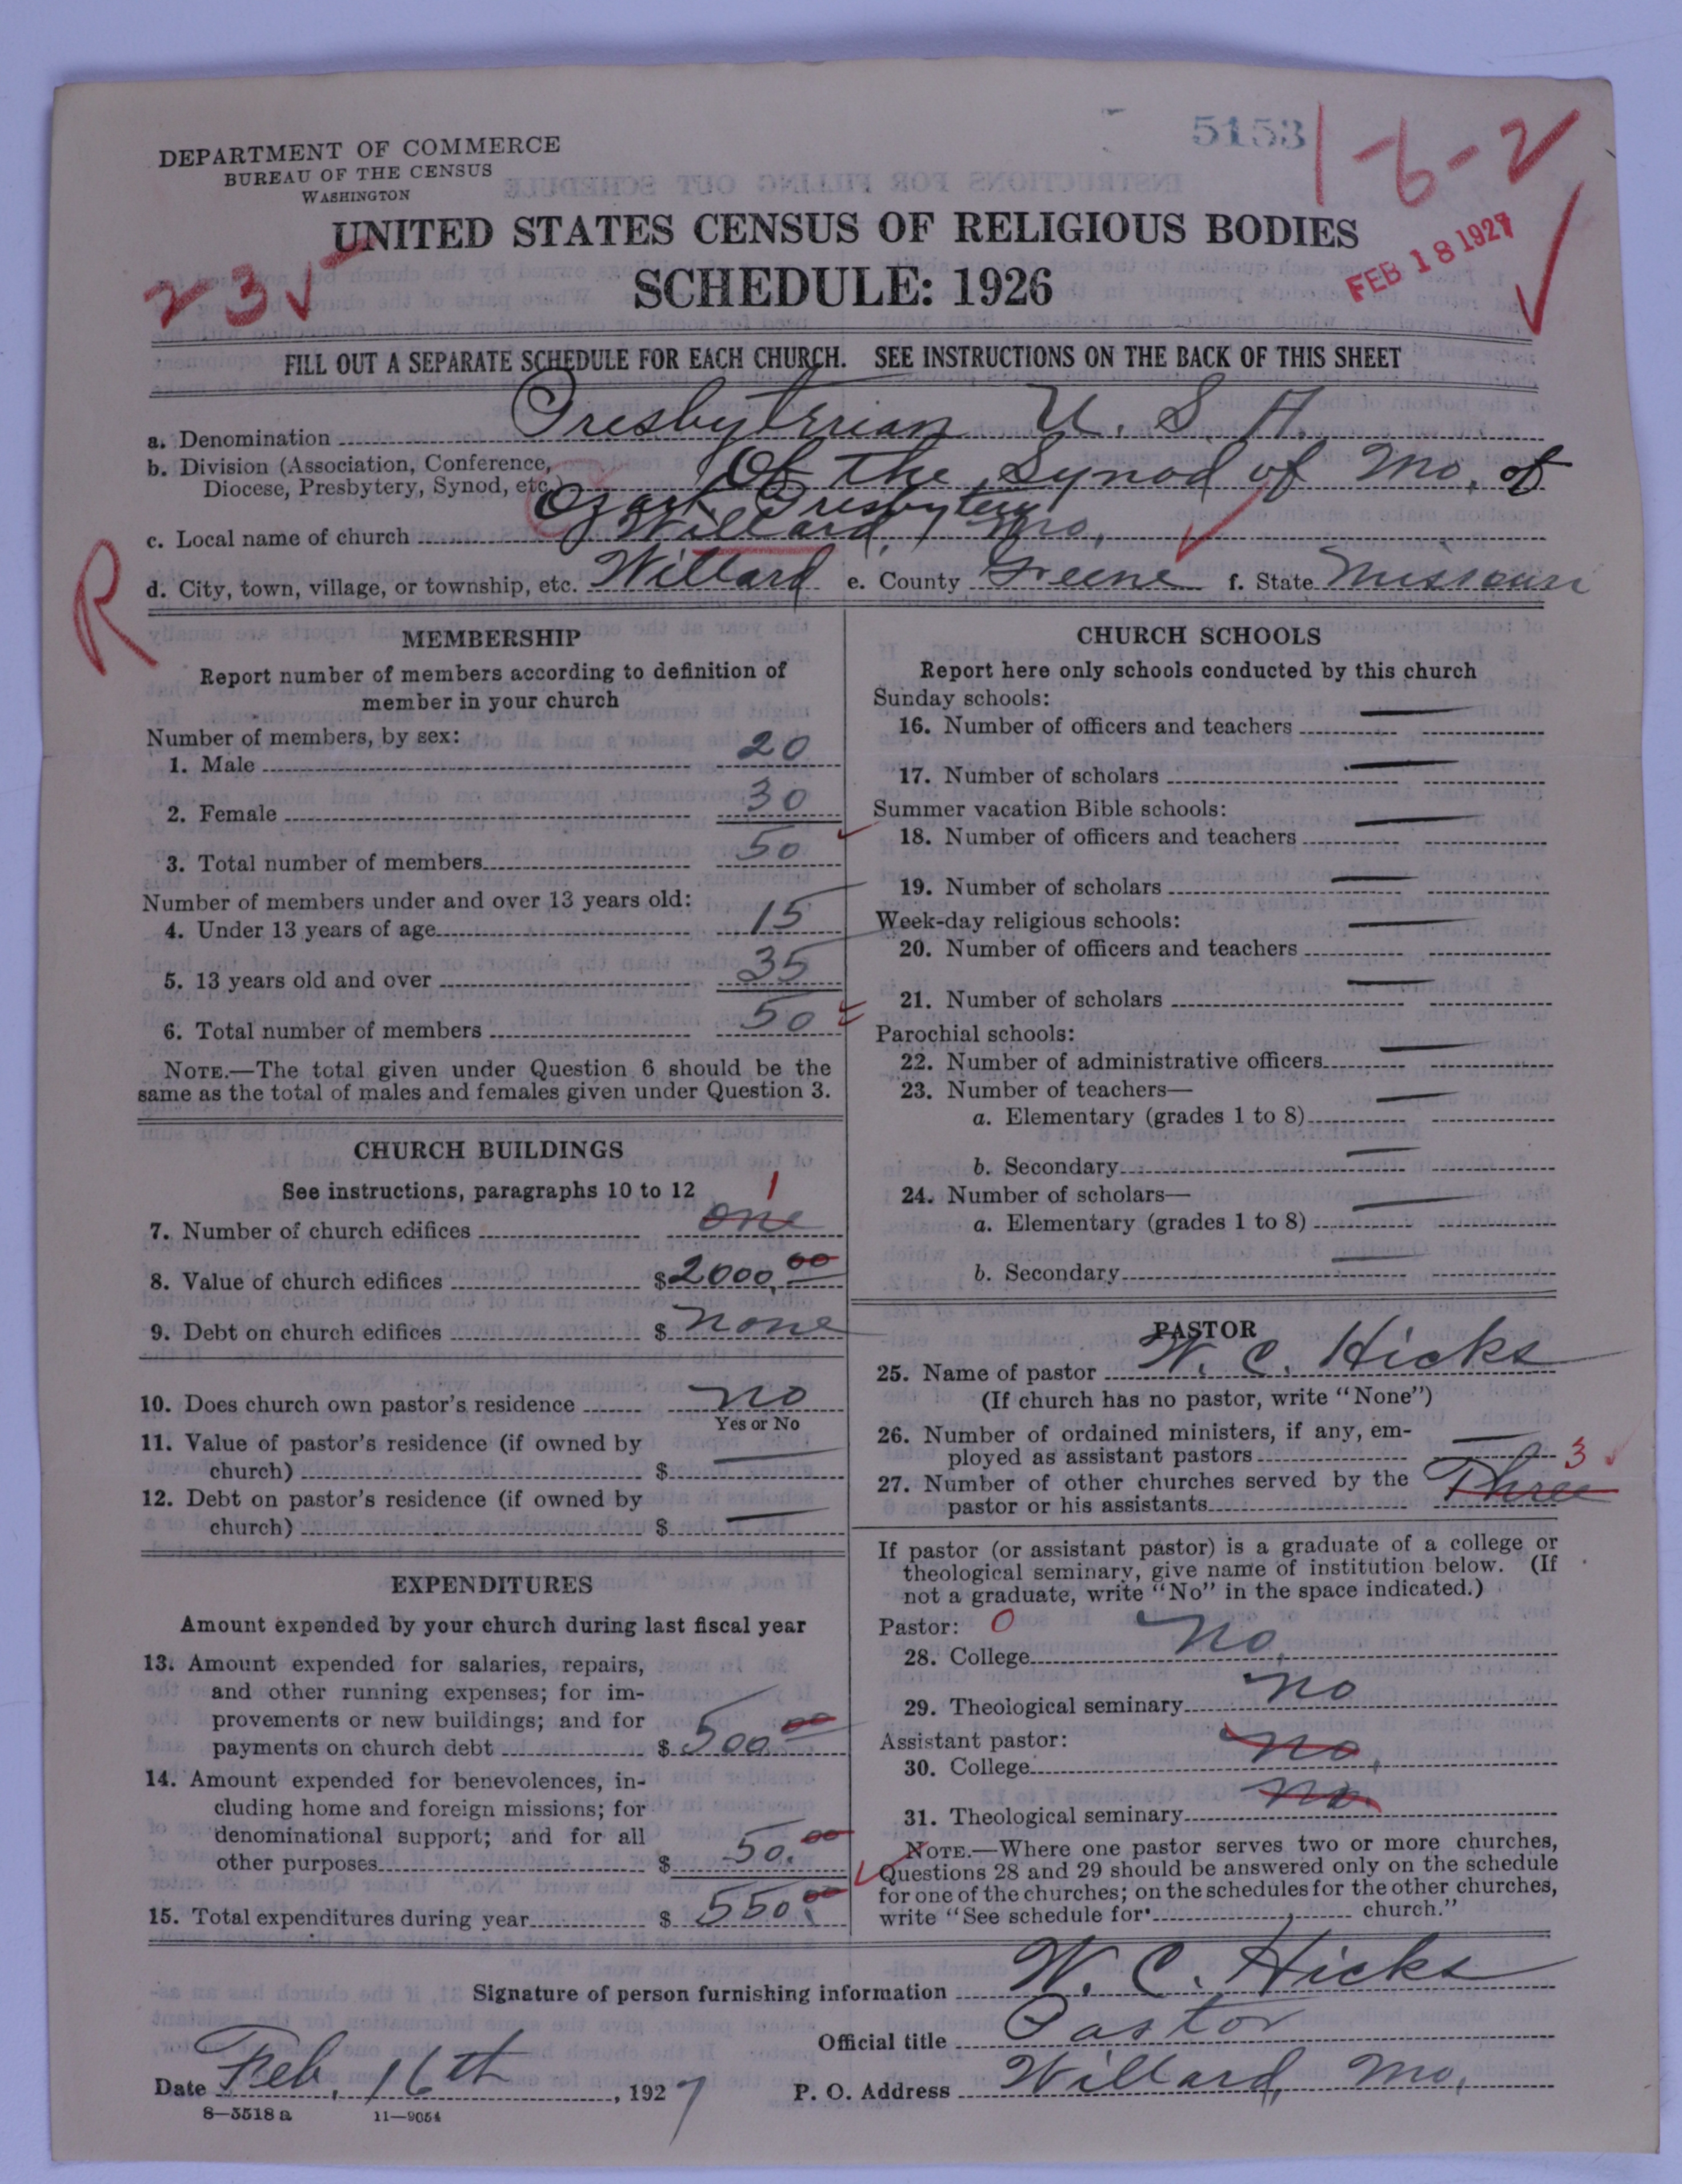 DEPARTMENT OF COMMERCE
BUREAU OF THE CENSUS
WASHINGTON
5153
1-6-2
UNITED STATES CENSUS OF RELIGIOUS BODIES
SCHEDULE: 1926
FEB 18 1927
235
FILL OUT A SEPARATE SCHEDULE FOR EACH CHURCH. SEE INSTRUCTIONS ON THE BACK OF THIS SHEET
a. Denomination Presbyterian U. S. A.
b. Division (Association, Conference, Of the Synod of Mo, of
Diocese, Presbytery, Synod, etc.) Ozark Presbytery
c. Local name of church Willard, Mo,
d. City, town, village, or township, etc. Willard e. County Greene f. State Missouri
R
MEMBERSHIP
Report number of members according to definition of
member in your church
Number of members, by sex:
1. Male 20
2. Female 30
3. Total number of members 50
Number of members under and over 13 years old:
4. Under 13 years of age 15
5. 13 years old and over 35
6. Total number of members 50
NOTE.—The total given under Question 6 should be the
same as the total of males and females given under Question 3.
CHURCH BUILDINGS
See instructions, paragraphs 10 to 12
1
7. Number of church edifices one
8. Value of church edifices $2000,00
9. Debt on church edifices $ none
10. Does church own pastor's residence no
Yes or No
11. Value of pastor's residence (if owned by
church) $ —
12. Debt on pastor's residence (if owned by
church) $ —
EXPENDITURES
Amount expended by your church during last fiscal year
13. Amount expended for salaries, repairs,
and other running expenses; for im-
provements or new buildings; and for
payments on church debt $ 500.00
14. Amount expended for benevolences, in-
cluding home and foreign missions; for
denominational support; and for all
other purposes $ 50.00
15. Total expenditures during year $ 550.00
CHURCH SCHOOLS
Report here only schools conducted by this church
Sunday schools:
16. Number of officers and teachers —
17. Number of scholars —
Summer vacation Bible schools:
18. Number of officers and teachers —
19. Number of scholars —
Week-day religious schools:
20. Number of officers and teachers —
21. Number of scholars —
Parochial schools:
22. Number of administrative officers —
23. Number of teachers—
a. Elementary (grades 1 to 8) —
b. Secondary —
24. Number of scholars—
a. Elementary (grades 1 to 8) —
b. Secondary —
PASTOR
25. Name of pastor W. C. Hicks
(If church has no pastor, write "None")
26. Number of ordained ministers, if any, em-
ployed as assistant pastors — 3
27. Number of other churches served by the Three
pastor or his assistants
If pastor (or assistant pastor) is a graduate of a college or
theological seminary, give name of institution below. (If
not a graduate, write "No" in the space indicated.)
Pastor: 0
28. College no,
29. Theological seminary no
Assistant pastor:
30. College no,
31. Theological seminary no.
NOTE.—Where one pastor serves two or more churches,
Questions 28 and 29 should be answered only on the schedule
for one of the churches; on the schedules for the other churches,
write "See schedule for church."
Signature of person furnishing information W. C. Hicks
Official title Pastor
Date Feb, 16th, 1927 P. O. Address Willard, Mo,
8—5518 a 11—9054